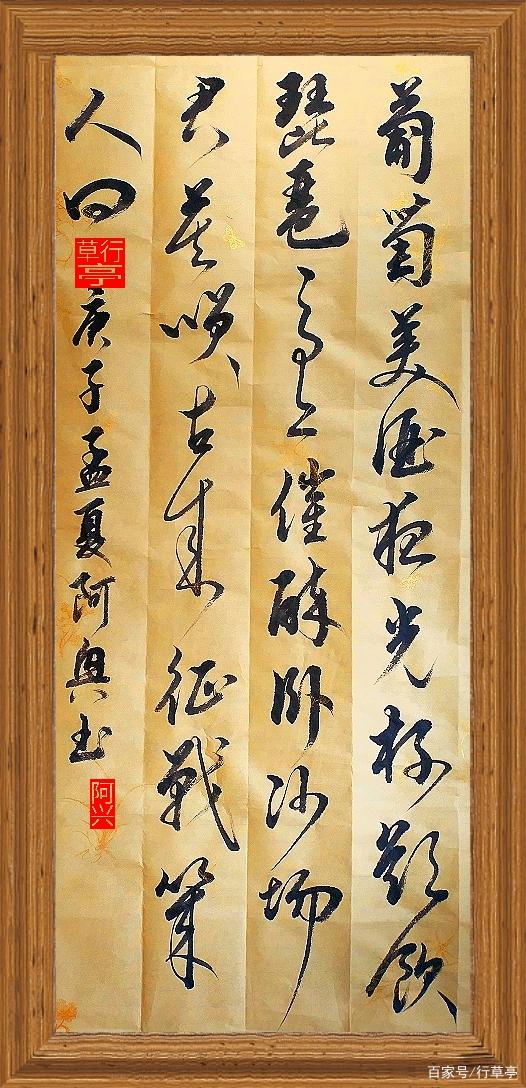 葡萄美酒夜光杯欲飲
琵琶馬上催醉卧沙場
君莫咲古来征戰幾
人回
行草亭
庚子孟夏阿興书
阿兴
百家号/行草亭